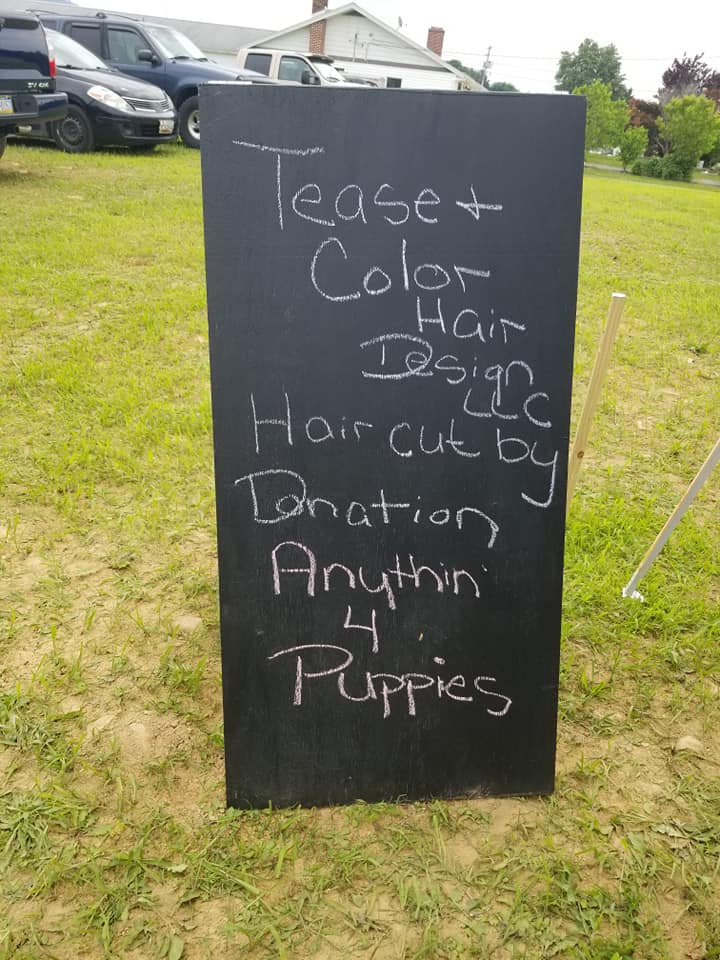 Tease +
Color
Hair
Design
LLC
Hair cut by
Donation
Anythin'
4
Puppies